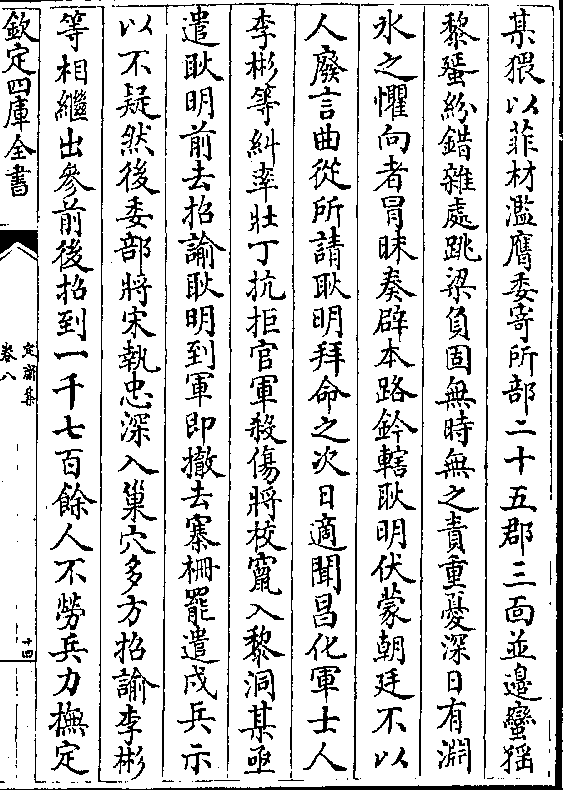 某猥以菲材濫膺委寄所部二十五郡三面並邊蠻猺
黎蜑紛錯雜處跳梁負固無時無之責重憂深日有淵
氷之懼向者冐昧奏辟本路鈐轄耿明伏蒙朝廷不以
人廢言曲從所請耿明拜命之次日適聞昌化軍士人
李彬等糾率壯丁抗拒官軍殺傷將校竄入黎洞某亟
遣耿明前去招諭耿明到軍即撤去寨柵罷遣戍兵示
以不疑然後委部將宋執忠深入巢穴多方招諭李彬
等相繼出參前後招到一千七百餘人不勞兵力撫定
欽定四庫全書
定齋集
卷八
十四